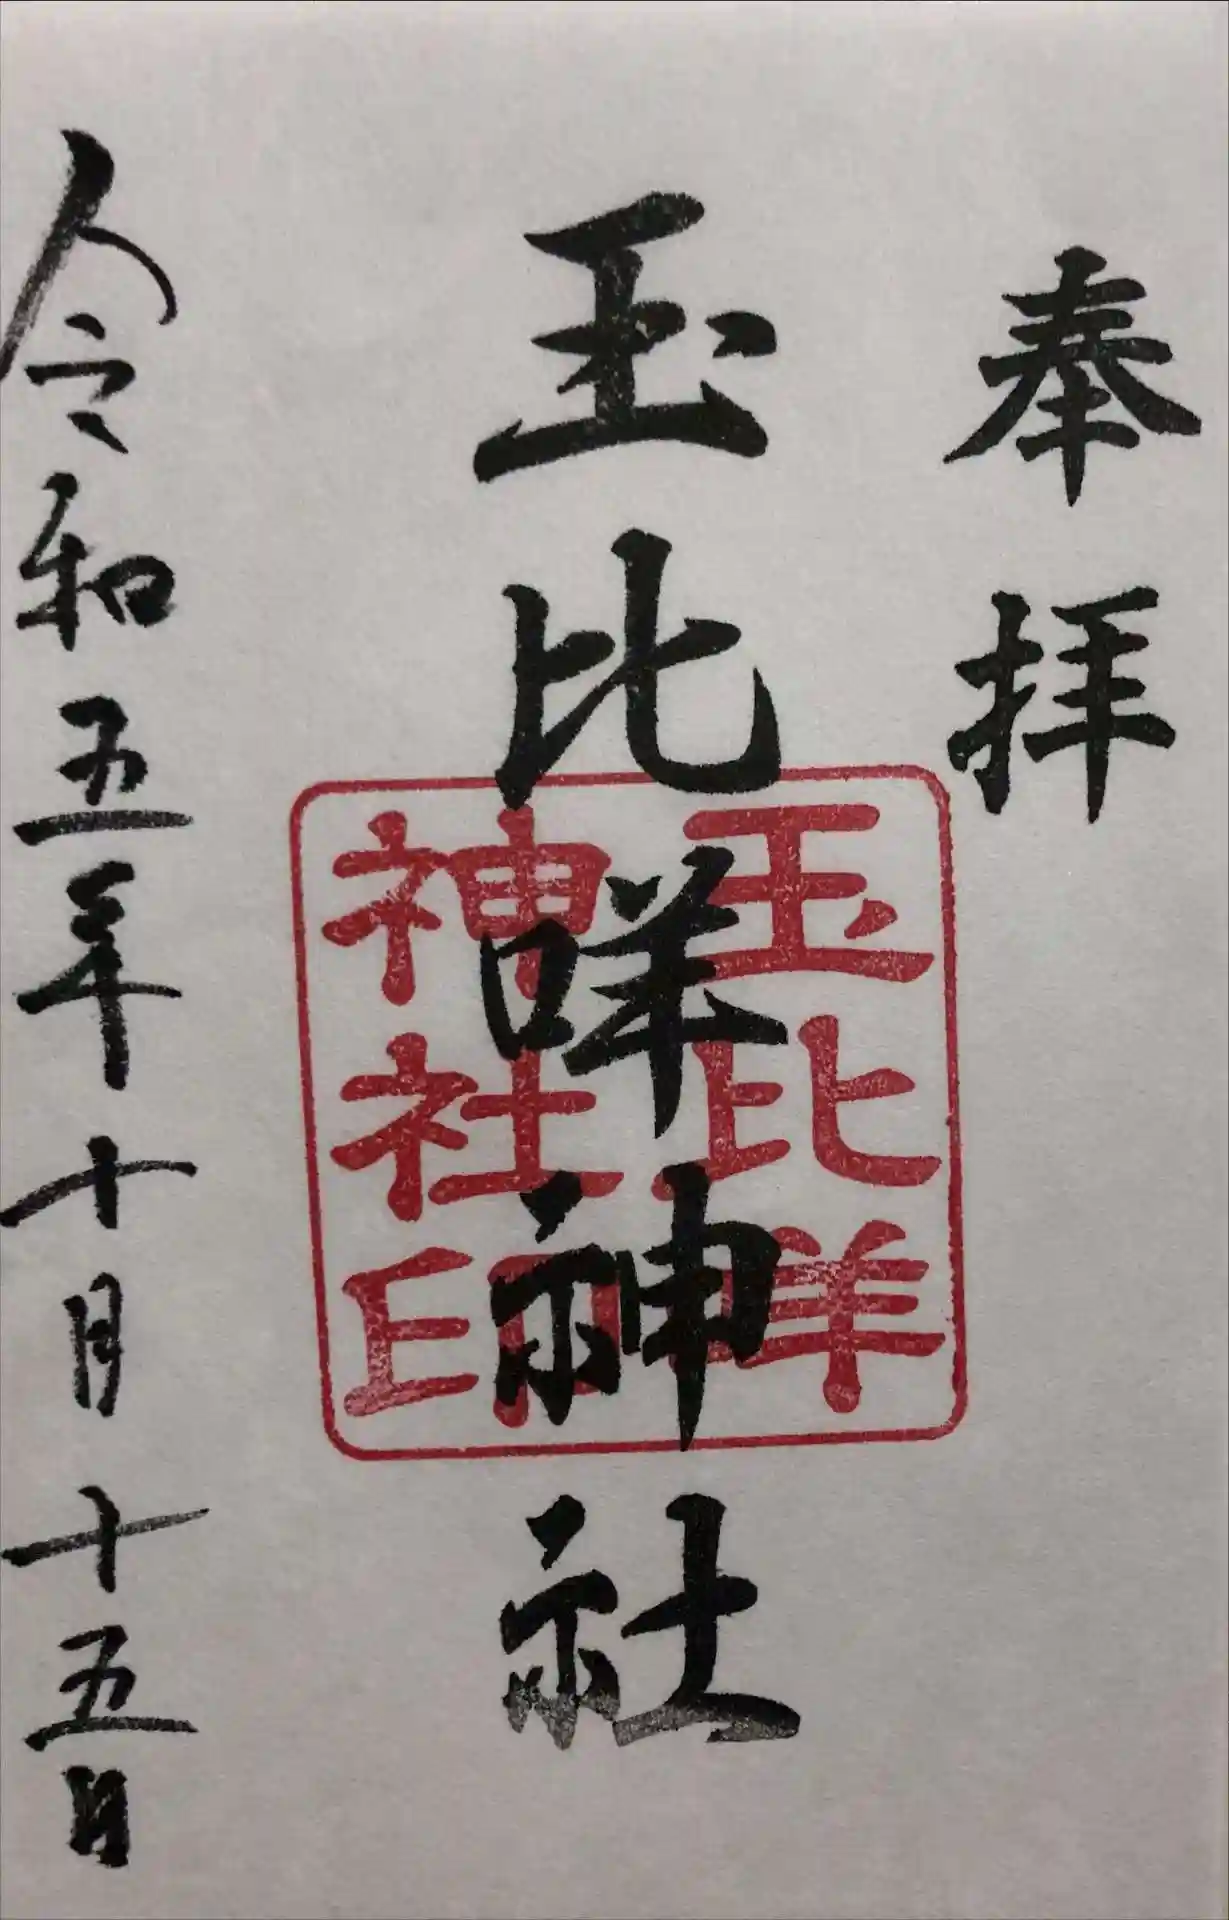 奉拝
玉比咩神社
玉比咩
神社印
令和五年十月十五日